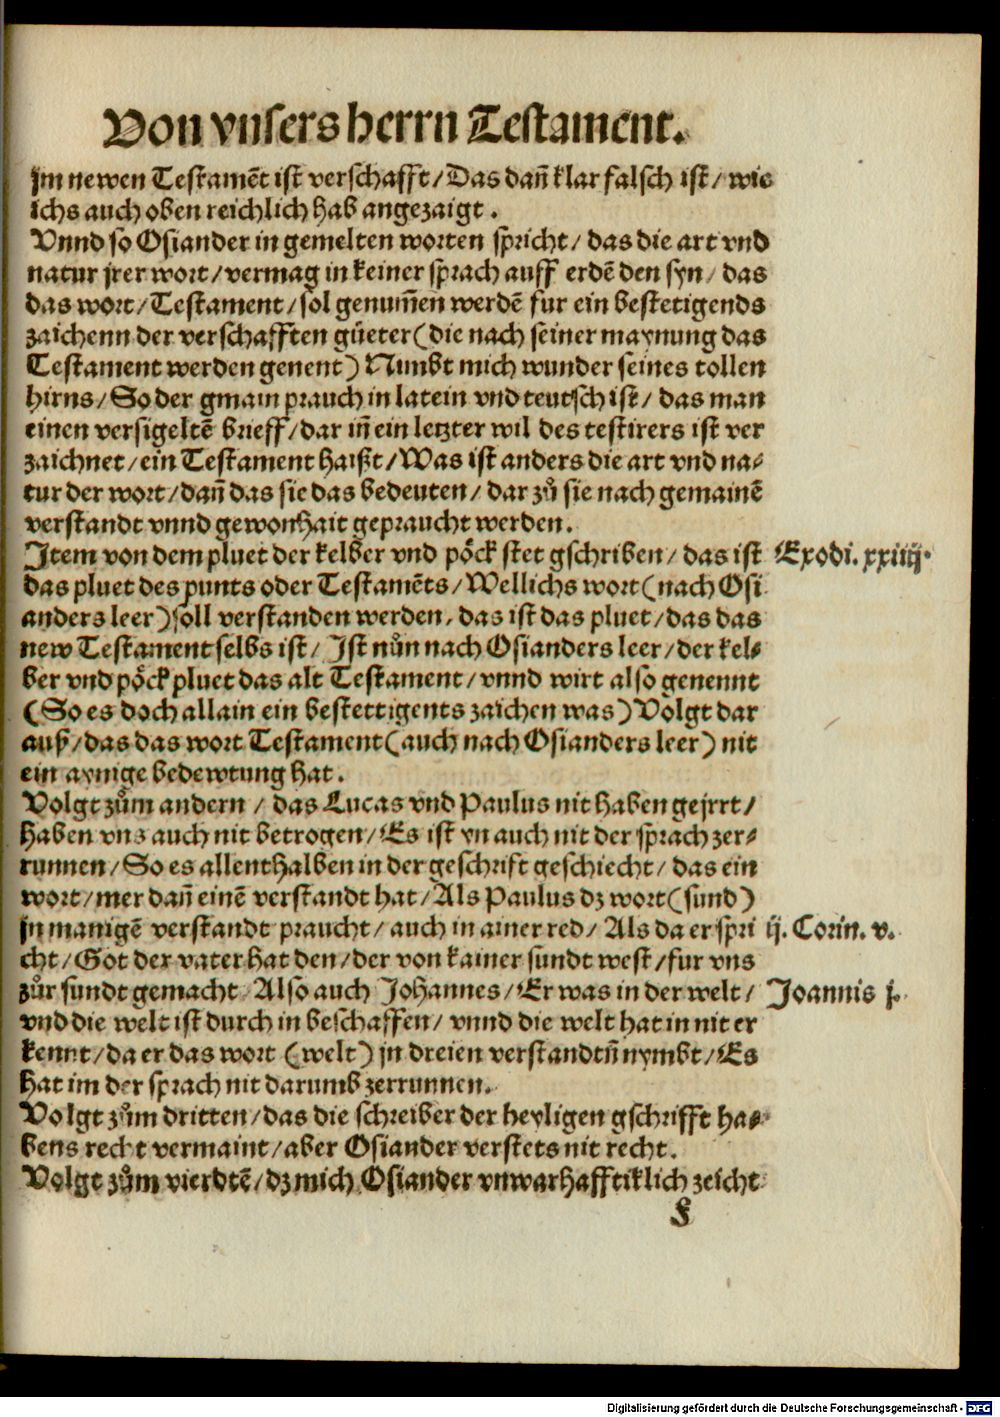 Von vnsers herrn Testament.
jm newen Testamẽt ist verschafft/Das dañ klar falsch ist/ wie
ichs auch oben reichlich hab angezaigt.
Vnnd so Osiander in gemelten worten spricht/ das die art vnd
natur jrer wort/vermag in keiner sprach auff erdẽ den syn/ das
das wort/Testament/sol genum̃en werdẽ fur ein bestetigends
zaichenn der verschafften gůeter(die nach seiner maynung das
Testament werden genent) Nimbt mich wunder seines tollen
hirns/So der gmain prauch in latein vnd teutsch ist/ das man
einen versigeltẽ brieff/dar iñ ein letzter wil des testirers ist ver
zaichnet/ein Testament haißt/Was ist anders die art vnd na-
tur der wort/dañ das sie das bedeuten/ dar zů sie nach gemainẽ
verstandt vnnd gewonhait gepraucht werden.
Item von dem pluet der kelber vnd pôck stet gschriben/ das ist
Exodi. xxiiij.
das pluet des punts oder Testamẽts/Wellichs wort(nach Osi
anders leer)soll verstanden werden, das ist das pluet/das das
new Testament selbs ist/ Ist nůn nach Osianders leer/der kel-
ber vnd pôck pluet das alt Testament/vnnd wirt also genennt
(So es doch allain ein bestettigents zaichen was)Volgt dar
auß/das das wort Testament(auch nach Osianders leer) nit
ein aynige bedewtung hat.
Volgt zům andern / das Lucas vnd Paulus nit haben gejrrt/
haben vns auch nit betrogen/Es ist yn auch nit der sprach zer-
runnen/So es allenthalben in der geschrift geschiecht/ das ein
wort/mer dañ einẽ verstandt hat/Als Paulus dz wort(sund)
jn manigẽ verstandt praucht/auch in ainer red/ Als da er spri
ij. Corin. v.
cht/Got der vater hat den/der von kainer sundt west/fur vns
zůr sundt gemacht/Also auch Johannes/Er was in der welt/
Joannis j.
vnd die welt ist durch in beschaffen/ vnnd die welt hat in nit er
kennt/da er das wort (welt)jn dreien verstandtñ nymbt/Es
hat im der sprach nit darumb zerrunnen.
Volgt zům dritten/das die schreiber der heyligen gschrifft ha-
bens recht vermaint/aber Osiander verstets nit recht.
Volgt zům vierdtẽ/dz mich Osiander vnwarhafftiklich zeicht
F
Digitalisierung gefördert durch die Deutsche Forschungsgemeinschaft - DFG